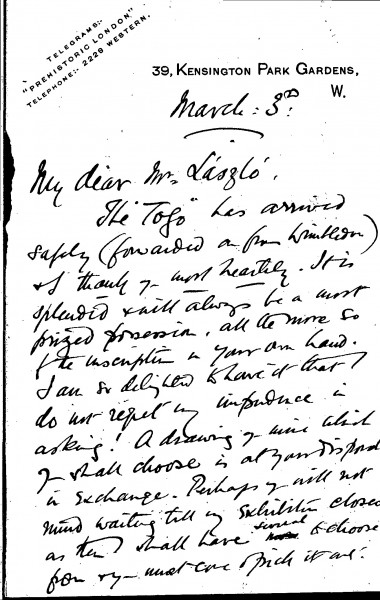 TELEGRAMS:-
"PREHISTORIC LONDON."
TELEPHONE:- 2229 WESTERN.
39, KENSINGTON PARK GARDENS,
W.
March: 3rd.
My dear Mr László,
The "Togo" has arrived
safely (forwarded on from Wimbledon)
& I thank y most heartily. It is
splendid & will always be a most
prized possession, all the more so
for the inscription in your own hand.
I am so delighted to have it that I
do not regret my impudence in
asking! A drawing of mine which
y shall choose is at your disposal
in exchange. Perhaps y will not
mind waiting till my exhibition closes
as then I shall have several to choose
from & y must come & pick it out.